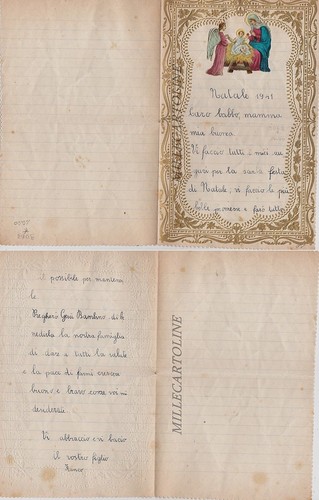 Natale 1941
Caro babbo, mamma
mia buona
Vi faccio tutti i miei au
guri per la santa festa
di Natale, vi faccio le più
belle promesse e farò tutto
il possibile per mantener
le.
Pregherò Gesù Bambino, di be
nedire la nostra famiglia
di dare a tutti la salute
e la pace di farmi crescere
buono e bravo come voi mi
desiderate.
Vi abbraccio e vi bacio
Il vostro figlio
MILLECARTOLINE
MILLECARTOLINE